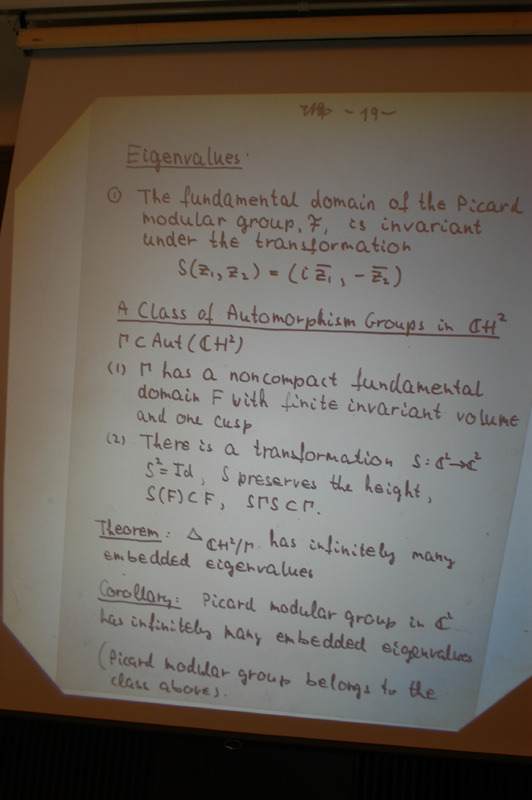 -19-
Eigenvalues:
① The fundamental domain of the Picard
modular group, F, is invariant
under the transformation
S(z₁, z₂) = (i z̄₁, -z̄₂)
A Class of Automorphism Groups in ℂH²
Γ ⊂ Aut(ℂH²)
(1) Γ has a noncompact fundamental
domain F with finite invariant volume
and one cusp
(2) There is a transformation S: ℂ²→ℂ²
S² = Id, S preserves the height,
S(F) ⊂ F, SΓS ⊂ Γ.
Theorem: Δ_ℂH²/Γ has infinitely many
embedded eigenvalues
Corollary: Picard modular group in ℂ²
has infinitely many embedded eigenvalues
(Picard modular group belongs to the
class above).